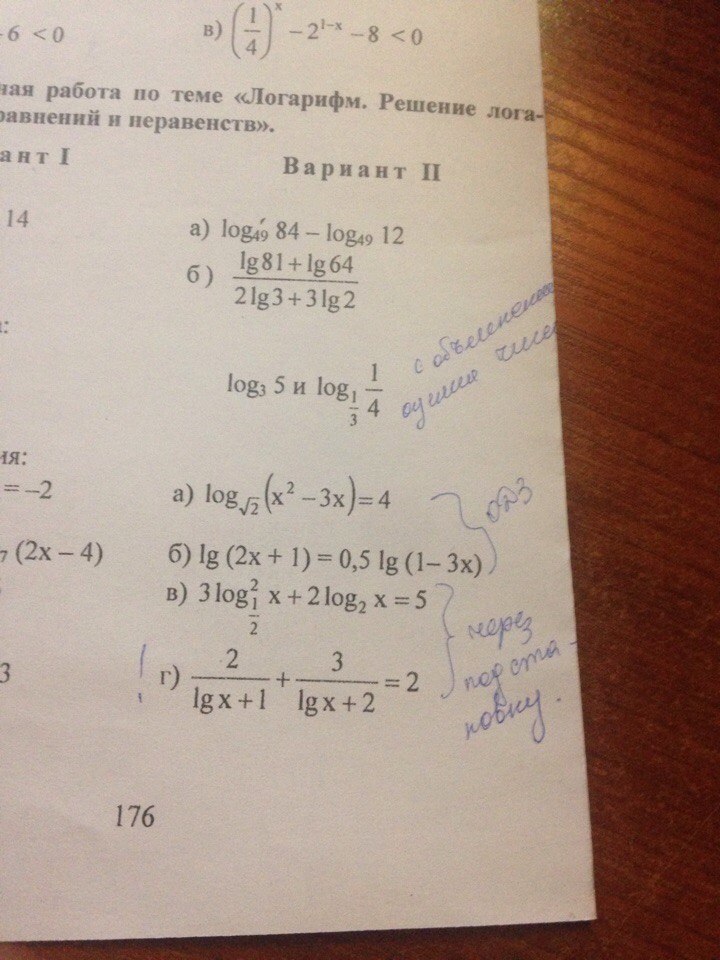 -6 < 0
в) (1/4)^x − 2^{1−x} − 8 < 0
ная работа по теме «Логарифм. Решение лога-
равнений и неравенств».
ант I
Вариант II
14
а) log₄₉ 84 – log₄₉ 12
б) (lg 81 + lg 64)/(2 lg 3 + 3 lg 2)
:
с
log₃ 5 и log_{1/3} 1/4
ия:
= –2
а) log_{√2} (x² − 3x) = 4
ОДЗ
₇ (2x – 4)
б) lg (2x + 1) = 0,5 lg (1– 3x)
в) 3 log²_{1/2} x + 2 log₂ x = 5
через
подста-
новку.
3
г) 2/(lg x + 1) + 3/(lg x + 2) = 2
176